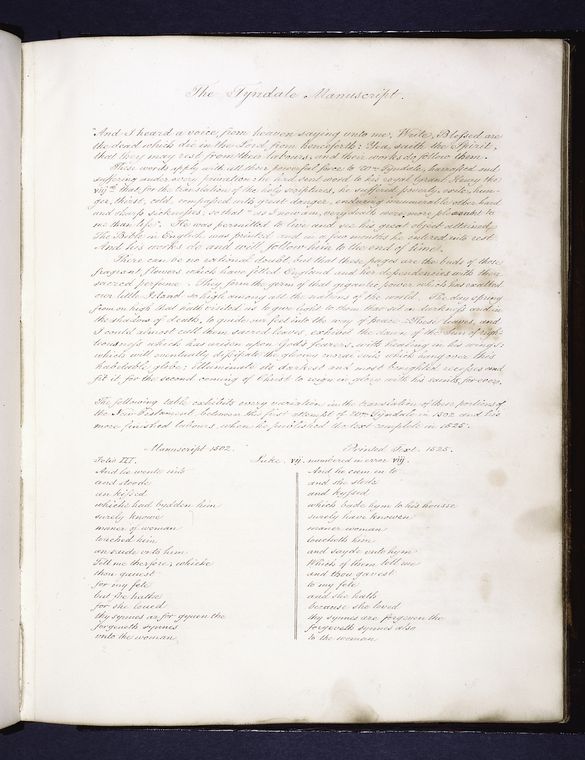 The Tyndale Manuscript.
"And I heard a voice from heaven saying unto me, Write, Blessed are
the dead which die in the Lord, from henceforth: Yea, saith the Spirit,
that they may rest from their labours, and their works do follow them.
These words apply with all their powerful force to Wm Tyndale, harrassed and
suffering under severe privations he
viijth that for the translation of the holy scriptures, he suffered poverty, exile, hun-
ger, thirst, cold, compassed with great danger, enduring innumerable other hard
and sharp sicknesses, so that "as I now am, very death were more pleasant to
me than life". He was permitted to live and see his great object attained,
The Bible in English was printed, and in a few months he entered into rest
And his works do and will follow him to the end of time.
There can be no rational doubt but that these pages are the buds of those
fragrant flowers which have filled England and her dependencies with their
sacred perfume. They form the germ of that gigantic power which has exalted
our little Island so high among all the nations of the world. The day spring
from on high that hath visited us to give light to them that sit in darkness and in
the shadow of death, to guide our feet into the way of peace. These leaves, and
I could almost call them sacred leaves, exhibit the dawn of the Sun of righ-
teousness which has arisen upon God's fearers, with healing in his wings
which will eventually dissipate the gloomy clouds which hang over this
habitable globe; illuminate its darkest and most benighted recesses and
fit it, for the second coming of Christ to reign in glory with his saints, for ever.
The following table exhibits every variation in the translation of these portions of
the New testament, between the first attempt of Wm Tyndale in 1502 and his
more finished labours, when he published the text complete in 1525.
Manuscript 1502. Printed Text. 1525.
Folio III. Luke. vij. numbered in error viij.
And he wente into And he cam in to
and stoode and she stode
an kissed and kyssed
whiche had bydden him which bade hym to his housse
surely knowe surely have knowen
maner of woman maner woman
touched him toucheth him
an saide unto him and sayde unto hym
Tell me therfore, whiche Which of them tell me
thou gauest and thou gavest
for my fete to my fete
but she hathe and she hath
for she loued because she loved
thy synnes ar for gyuen the thy synnes are forgeven the
forgeveth synnes forgeveth synnes also
unto the woman to the woman